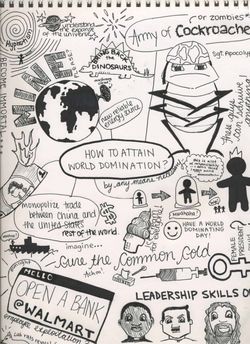 Hypnotism
understand
the expanse
of the universe
BRING BACK
the
DINOSAURS
or zombies
Army of
COCKROACHES
Sgt. Apocalypse
BECOME IMMORTAL
MINE
new reliable
energy source
HOW TO ATTAIN
WORLD DOMINATION?
by any means necessary
monopolize trade
between China and
the United States
rest of the world.
Mwahaha
HAVE A WORLD
DOMINATING
DAY!
imagine...
Cure the Common Cold
Achoo!
HELLO
OPEN A BANK
@WALMART
LEADERSHIP SKILLS OF